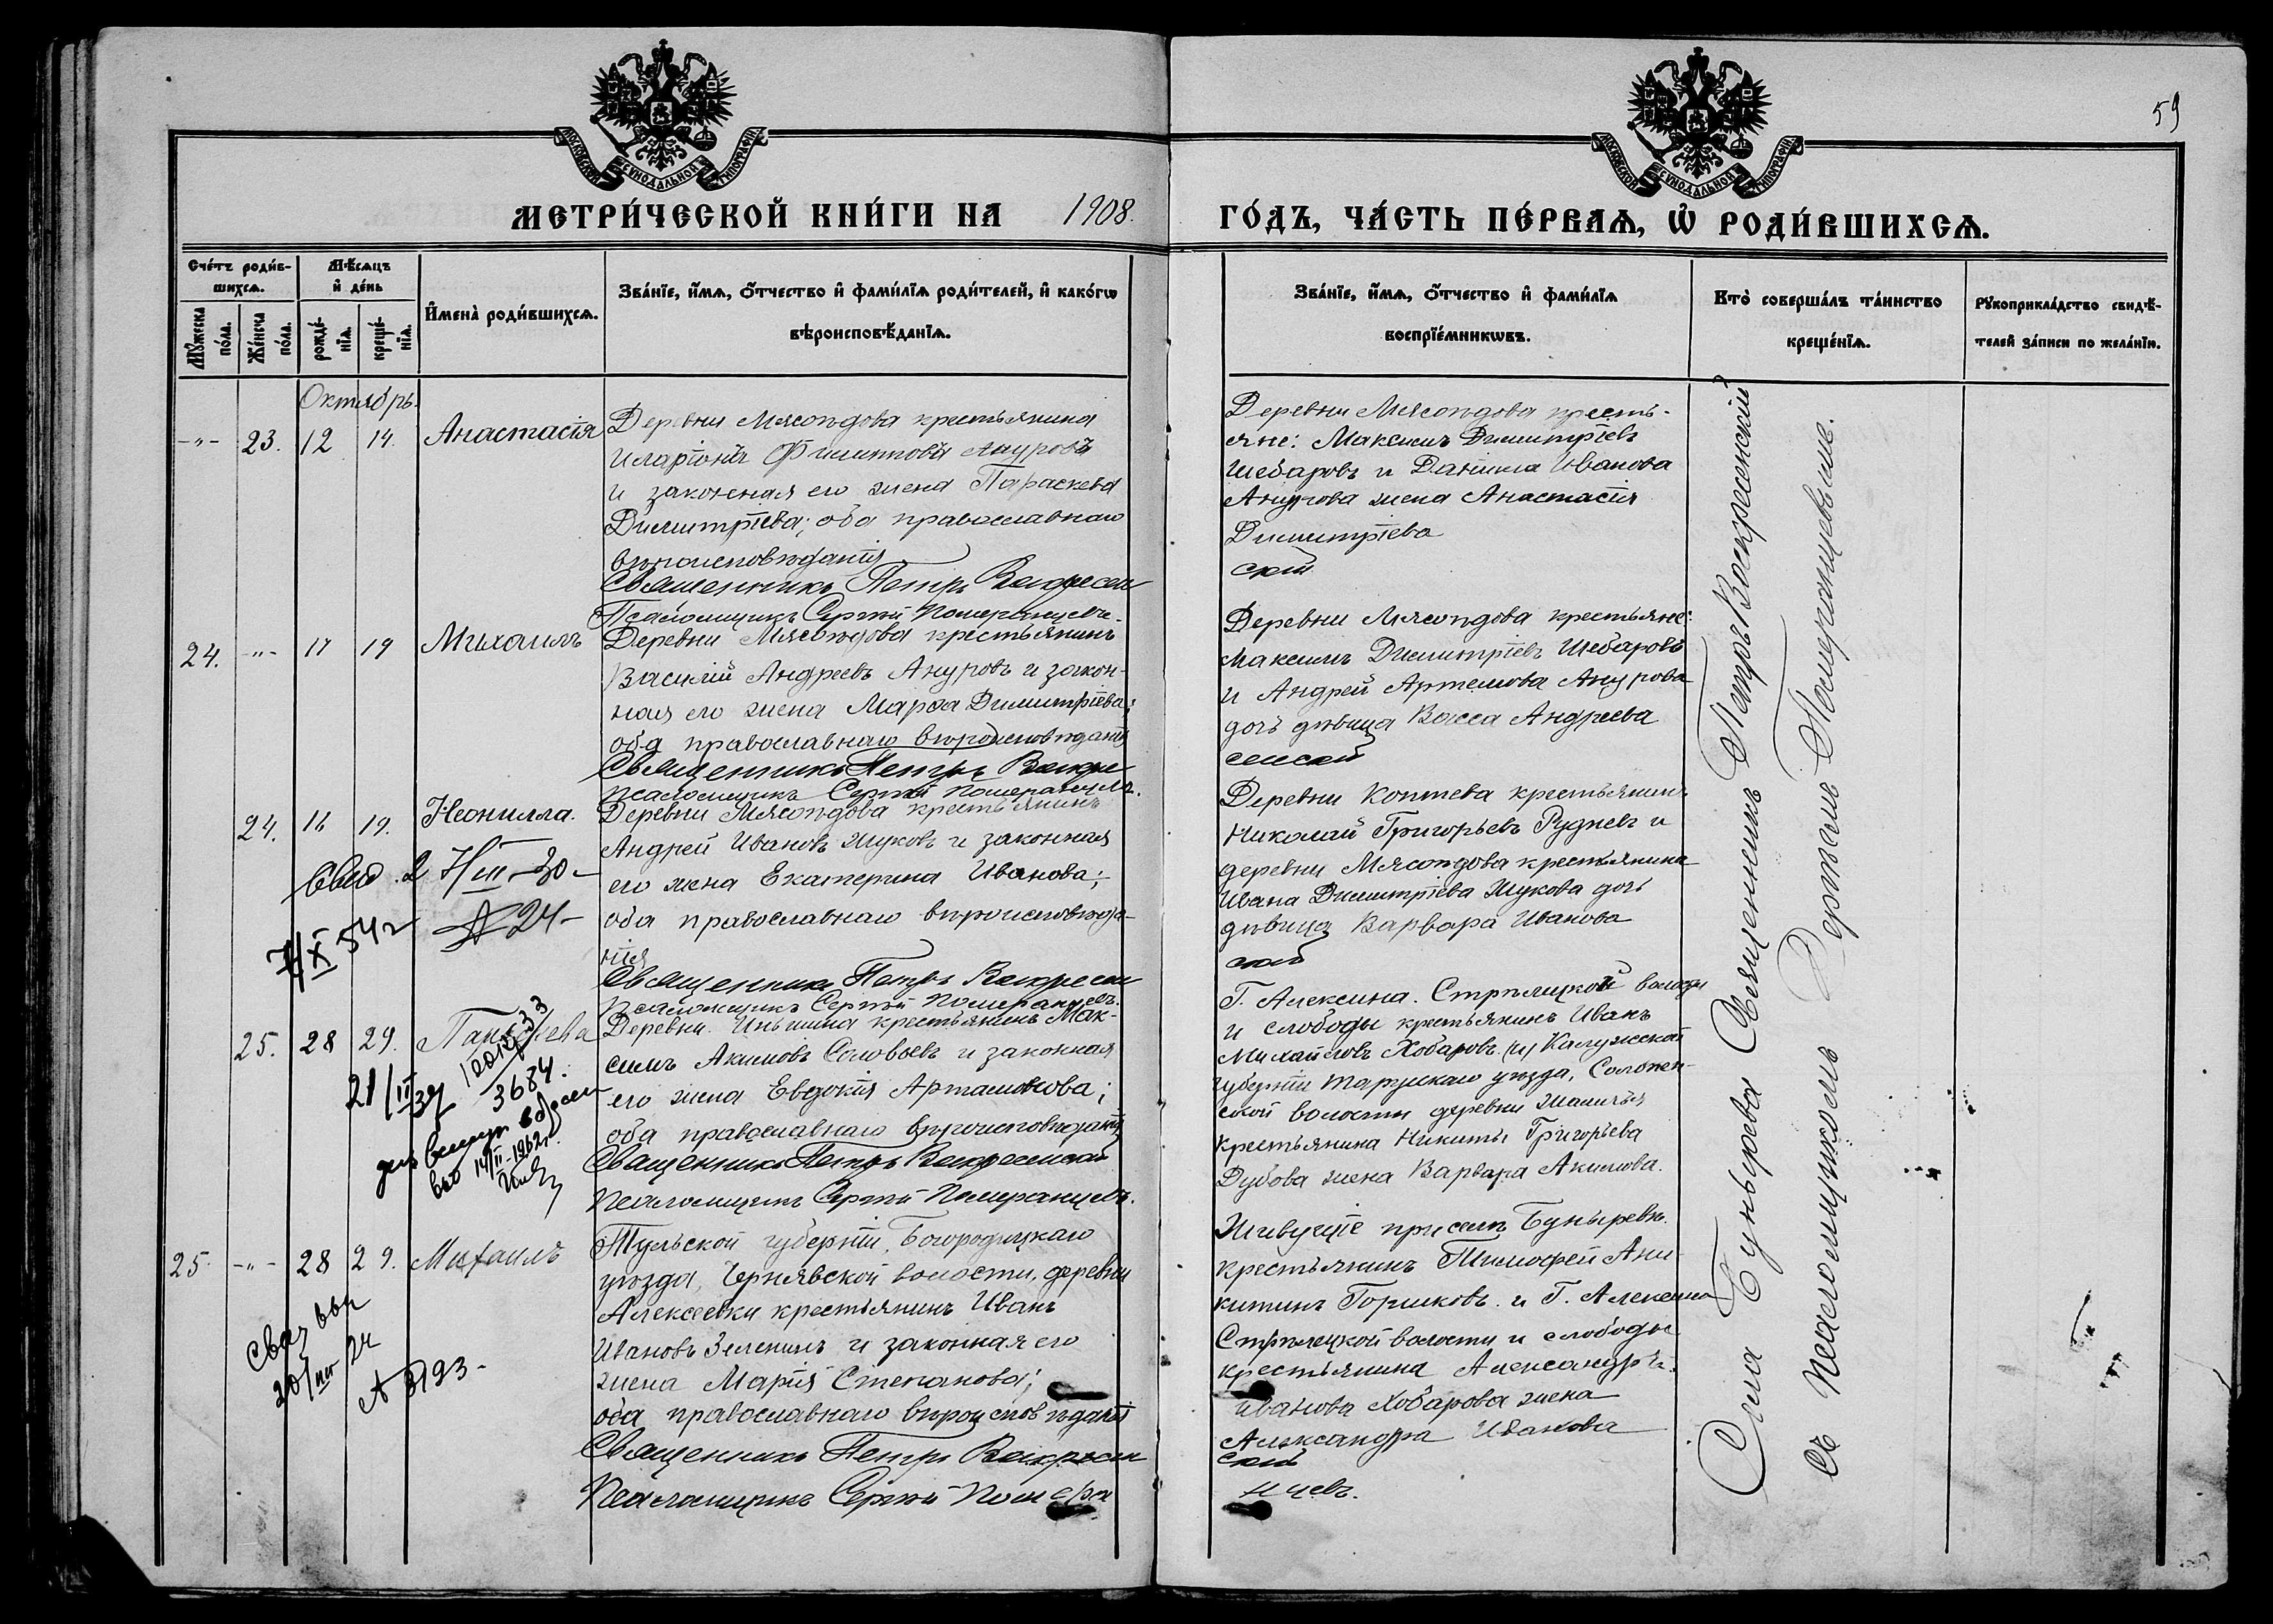 59
МОСКОВСКОЙ СѴНОДАЛЬНОЙ ТИПОГРАФІИ
МОСКОВСКОЙ СѴНОДАЛЬНОЙ ТИПОГРАФІИ
МЕТРИ́ЧЕСКОЙ КНИ́ГИ НА 1908. ГО́ДЪ, ЧА́СТЬ ПЕ́РВАѦ, Ѡ҆ РОДИ́ВШИХСѦ.
Сче́тъ роди́в-
шихсѧ.
Мꙋ́жеска по́ла.
Же́нска по́ла.
Мѣ́сѧцъ
и҆ де́нь
рожде́-
нїѧ.
креще́-
нїѧ.
И҆мена̀ роди́вшихсѧ.
Зва́нїе, и҆́мѧ, ѻ҆́тчество и҆ фами́лїѧ роди́телей, и҆ како́гѡ
вѣроисповѣ́данїѧ.
Зва́нїе, и҆́мѧ, ѻ҆́тчество и҆ фами́лїѧ
воспрїе́мникѡвъ.
Кто̀ соверша́лъ та́инство
креще́нїѧ.
Рꙋкоприкла́дство свидѣ́-
телей за́писи по жела́нїю.
Октябрь.
-„- 23. 12 14. Анастасія
Деревни Мясоѣдова крестьянина
Иларіонъ Филипповъ Ануровъ
и законная его жена Параскева
Димитріева; оба православнаго
вѣроисповѣданія
Священникъ Петръ Воскресен
Псаломщикъ Сергѣй Померанцевъ.
Деревни Мясоѣдова кресть-
яне: Максимъ Димитріевъ
Шебаровъ и Даніила Иванова
Анурова жена Анастасія
Димитріева
скій
24. -„- 17 19 Михаилъ
Деревни Мясоѣдова крестьянинъ
Василій Андреевъ Ануровъ и закон-
ная его жена Марѳа Димитріева;
оба православнаго вѣроисповѣданія
Священникъ Петръ Воскре
Псаломщикъ Сергѣй Померанцевъ.
Деревни Мясоѣдова крестьяне:
Максимъ Димитріевъ Шебаровъ
и Андрей Артемова Анурова
дочь дѣвица Васса Андреева
сенскій
24. 16 19. Неонилла.
Деревни Мясоѣдова крестьянинъ
Андрей Ивановъ Жуковъ и законная
его жена Екатерина Иванова;
оба православнаго вѣроисповѣда-
нія
Священникъ Петръ Воскресен
Псаломщикъ Сергѣй Померанцевъ.
Деревни Коптева крестьянинъ
Николай Григорьевъ Рудневъ и
деревни Мясоѣдова крестьянина
Ивана Димитріева Жукова дочь
дѣвица Варвара Иванова
скій
7/III-30-
№ 24-
7/X 54 г
25. 28 29.
Деревни Иньшина крестьянинъ Мак-
симъ Акимовъ Соловьевъ и законная
его жена Евдокія Артамонова;
оба православнаго вѣроисповѣданія
Священникъ Петръ Воскресенскій
Псаломщикъ Сергѣй Померанцевъ.
Г. Алексина. Стрѣлецкой волости
и слободы крестьянинъ Иванъ
Михайловъ Хобаровъ (и) Калужской
губерніи Тарускаго уѣзда, Соломен-
ской волости деревни
крестьянина Никиты Григорьева
Дубова жена Варвара Акимова.
21/II 39
3684.
14/II-1962 г.
25. -„- 28 29. Михаилъ
Тульской губерніи, Богородицкаго
уѣзда, Чернявской волости, деревни
Алексеевки крестьянинъ Иванъ
Ивановъ Зеленинъ и законная его
жена Марія Степанова;
оба православнаго вѣроисповѣданія
Священникъ Петръ Воскресен
Псаломщикъ Сергѣй Помера
Живущіе при селѣ Буныревѣ.
крестьянинъ Тимофей Ани-
китинъ Горшковъ. и Г. Алексина
Стрѣлецкой волости и слободы
крестьянина Александра
Иванова Хобарова жена
Александра Иванова
скій
нцевъ.
Села Бунырева Священникъ Петръ Воскресенскій
съ Псаломщикомъ Сергѣемъ Померанцевымъ.